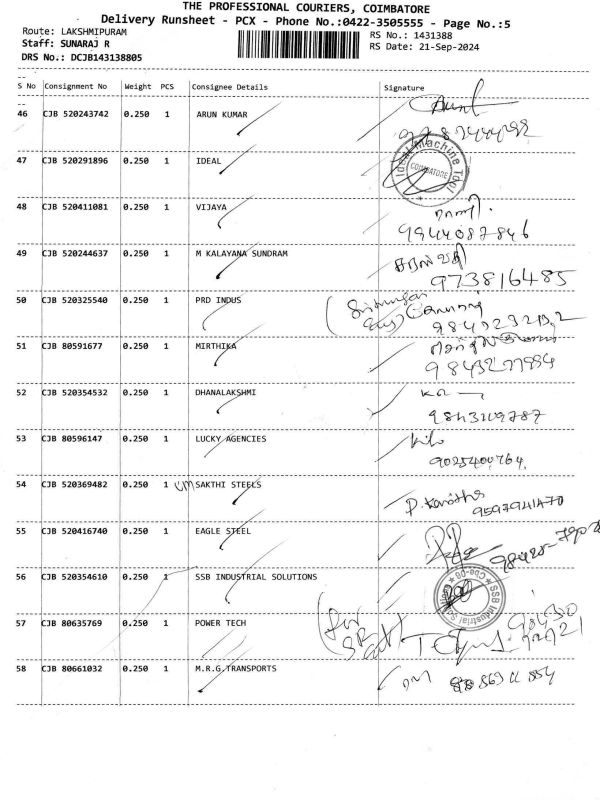 THE PROFESSIONAL COURIERS, COIMBATORE
Delivery Runsheet - PCX - Phone No.:0422-3505555 - Page No.:5
Route: LAKSHMIPURAM
RS No.: 1431388
Staff: SUNARAJ R
RS Date: 21-Sep-2024
DRS No.: DCJB143138805
S No Consignment No Weight PCS Consignee Details Signature
46 CJB 520243742 0.250 1 ARUN KUMAR
47 CJB 520291896 0.250 1 IDEAL
Ideal Machine Tool
COIMBATORE
48 CJB 520411081 0.250 1 VIJAYA
9944087846
49 CJB 520244637 0.250 1 M KALAYANA SUNDRAM
973816485
50 CJB 520325540 0.250 1 PRD INDUS
51 CJB 80591677 0.250 1 MIRTHIKA
52 CJB 520354532 0.250 1 DHANALAKSHMI
9843209787
53 CJB 80596147 0.250 1 LUCKY AGENCIES
9025400764
54 CJB 520369482 0.250 1 UM SAKTHI STEELS
9597941470
55 CJB 520416740 0.250 1 EAGLE STEEL
56 CJB 520354610 0.250 1 SSB INDUSTRIAL SOLUTIONS
SSB Industrial
57 CJB 80635769 0.250 1 POWER TECH
58 CJB 80661032 0.250 1 M.R.G.TRANSPORTS